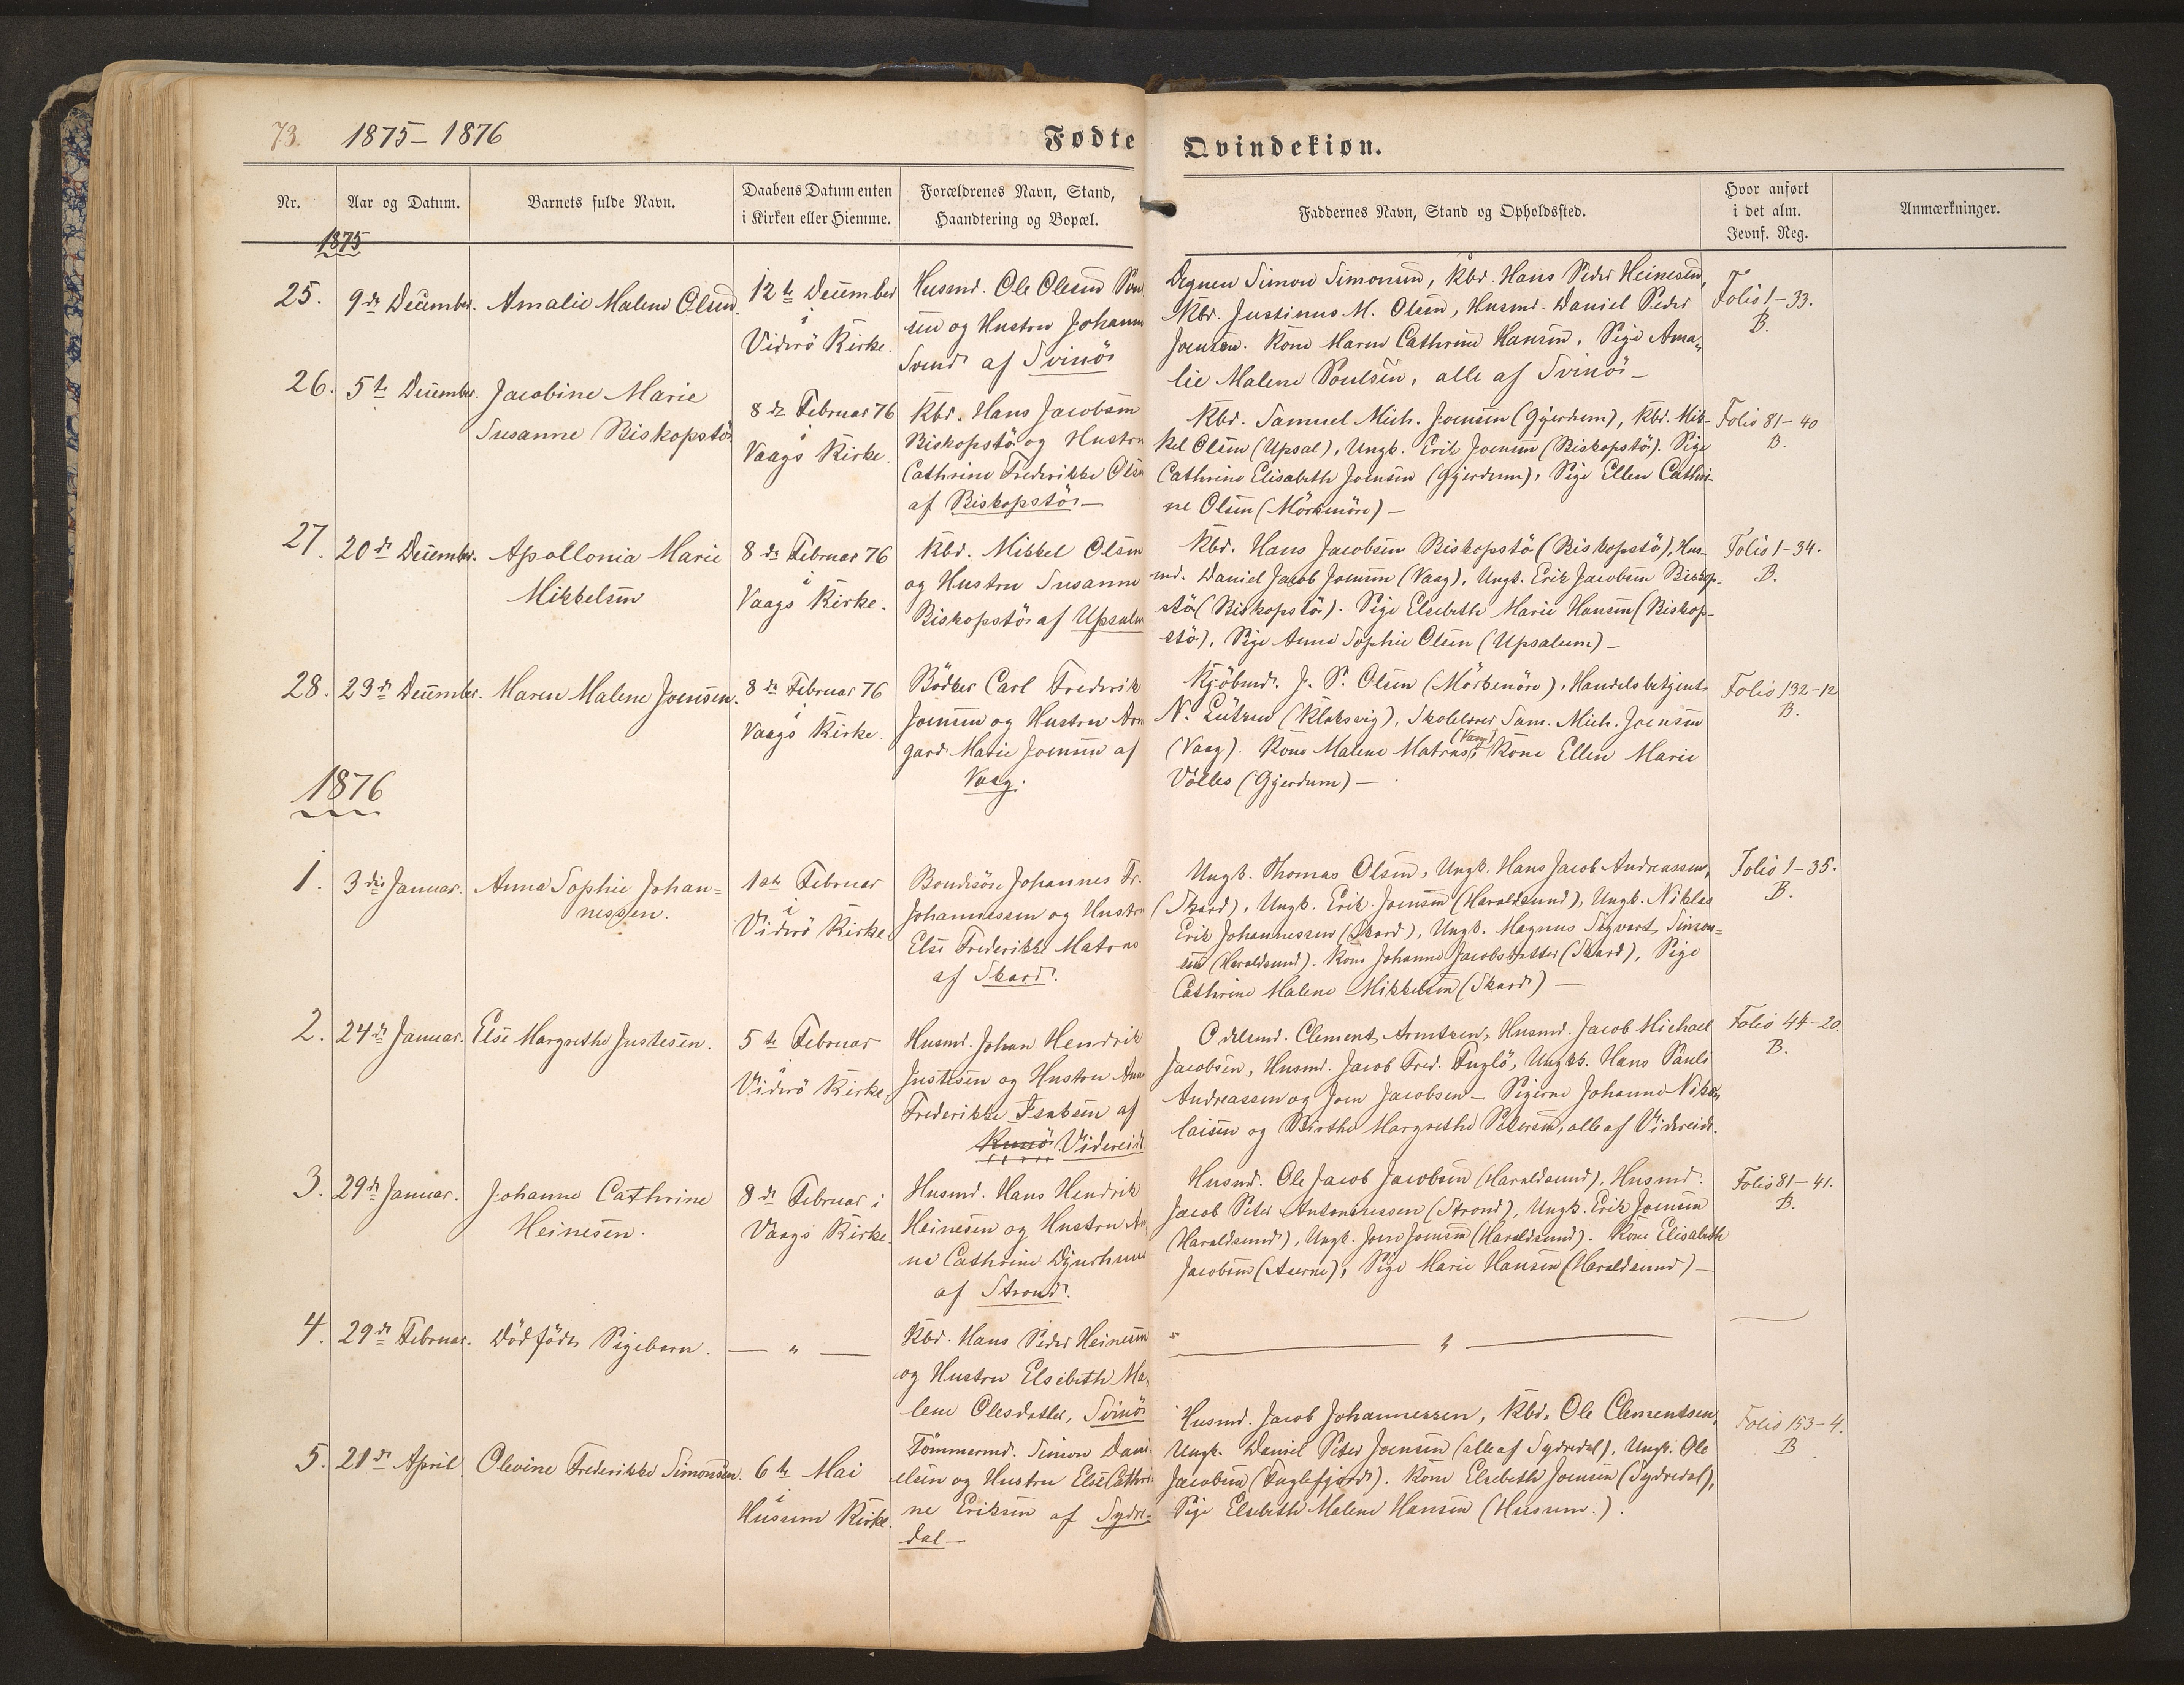 73. 1875-1876 Fødte Qvindekiøn.
Nr. Aar og Datum. Barnets fulde Navn. Daabens Datum enten i Kirken eller Hiemme. Forældrenes Navn, Stand, Haandtering og Bopæl. Faddernes Navn, Stand og Opholdssted. Hvor anført i det alm. Jevnf. Reg. Anmærkninger.
1875
25. 9de December. Amalie Malene Olsen. 12te December
i
Viderö Kirke.
Husmd. Ole Olesen
sen og Hustru
af Svinö
Degnen Simon Simonsen, Kbd. Hans Peder Heinesen,
Kbd. Justinus M. Olsen, Husmd. Daniel Peder
Joensen. Kone Maren Cathrine Hansen, Pige Ama„
lie Malene Poulsen, alle af Svinö —
Folio 1-33.
B.
26. 5te December. Jacobine Marie
Susanne Biskopstö
8de Februar 76
i
Vaags Kirke.
Kbd. Hans Jacobsen
Biskopstö og Hustru
Cathrine Frederikke Olsen
af Biskopstö —
Kbd. Samuel Mich. Joensen (Gjerdum), Kbd. Mik-
kel Olsen (Upsal), Ungk. Erik Joensen (Biskopstö). Pige
Cathrine Elisabeth Joensen (Gjerdum), Pige Ellen Cathri-
ne Olsen (Mörkenöre) —
Folio 81-40
B.
27. 20de Decembr. Apollonia Marie
Mikkelsen
8de Februar 76
i
Vaags Kirke.
Kbd. Mikkel Olsen
og Hustru Susanne
Biskopstö af
Kbd. Hans Jacobsen Biskopstö (Biskopstö), Hus-
md. Daniel Jacob Joensen (Vaag), Ungk. Erik Jacobsen Biskop-
stö (Biskopstö). Pige Elsebeth Marie Hansen (Biskop-
stö), Pige Anna Sophie Olsen (Upsalum) —
Folio 1-34.
B.
28. 23de December. Maren Malene Joensen. 8de Februar 76
i
Vaags Kirke.
Bödker Carl Frederik
Joensen og Hustru Arn
gard Marie Joensen af
Vaag.
Kjöbmd. J. P. Olsen (Mörkenöre), Handelsbetjent
N. Lützen (Klaksvig), Skolelærer Sam. Mich. Joensen
(Vaag). Kone Malene Matras (Vaag), Kone Ellen Marie
(Gjerdum) —
Folio 132-12
B.
1876
1. 3die Januar. Anna Sophie Johan=
nessen.
Februar
i
Viderö Kirke.
Bondesön Johannes Fr.
Johannessen og Hustru
Else Frederikke Matras
af Skard.
Ungk. Thomas Olsen, Ungk. Hans Jacob Andreassen,
(Skard), Ungk. Erik Joensen (Haraldsund), Ungk. Niklas
Erik Johannessen (Skard), Ungk. Magnus Sigvart Simon=
sen (Haraldsund). Kone Johanne Jacobsdatter (Skard), Pige
Cathrine Malene Mikkelsen (Skard) —
Folio 1-35.
B.
2. 24de Januar. Else Margrethe Justesen. 5te Februar
i
Viderö Kirke.
Husmd. Johan Hendrik
Justesen og Hustru Ann
Frederikke Isaksen af
Kunö Videreidi
Odelsmd. Clement Arntzen, Husmd. Jacob Michael
Jacobsen, Husmd. Jacob Fred. Fuglö, Ungkk. Hans Pauli
Andreassen og Joen Jacobsen — Pigerne Johanne Niko„
laisen og Birthe Margrethe Petersen, alle af Videreide.
Folio 44-20.
B.
3. 29de Januar. Johanne Cathrine
Heinesen.
8de Februar i
Vaags Kirke.
Husmd. Hans Hendrik
Heinesen og Hustru An
na Cathrine Djurhuus
af Strond.
Husmd. Ole Jacob Jacobsen (Haraldsund), Husmd.
Jacob Peter Antoniussen (Strond), Ungk. Erik Joensen
(Haraldsund), Ungk. Joen Joensen (Haraldsund). Kone Elisabeth
Jacobsen, Pige Marie Hansen (Haraldsund) —
Folio 81-41.
B.
4. 29de Februar. Dödfödt Pigebarn. — „ —
Kbd. Hans Peder Heinesen
og Hustru Elsebeth Ma„
lene Olesdatter, Svinö
„ — „ —
5. 21de April Olevine Frederikke Simonsen. 6te Mai
i
Husum Kirke.
Tömmermd. Simon Dani
elsen og Hustru Else Cathri
ne Eriksen af Sydre=
dal —
Husmd. Jacob Johannessen, Kbd. Ole Clementsen,
Ungk. Daniel Peter Joensen (alle af Sydredal), Ungk. Ole
Jacobsen (Fuglefjord). Kone Elsebeth Joensen (Sydredal),
Pige Elsebeth Malene Hansen (Husum).
Folio 153-4.
B